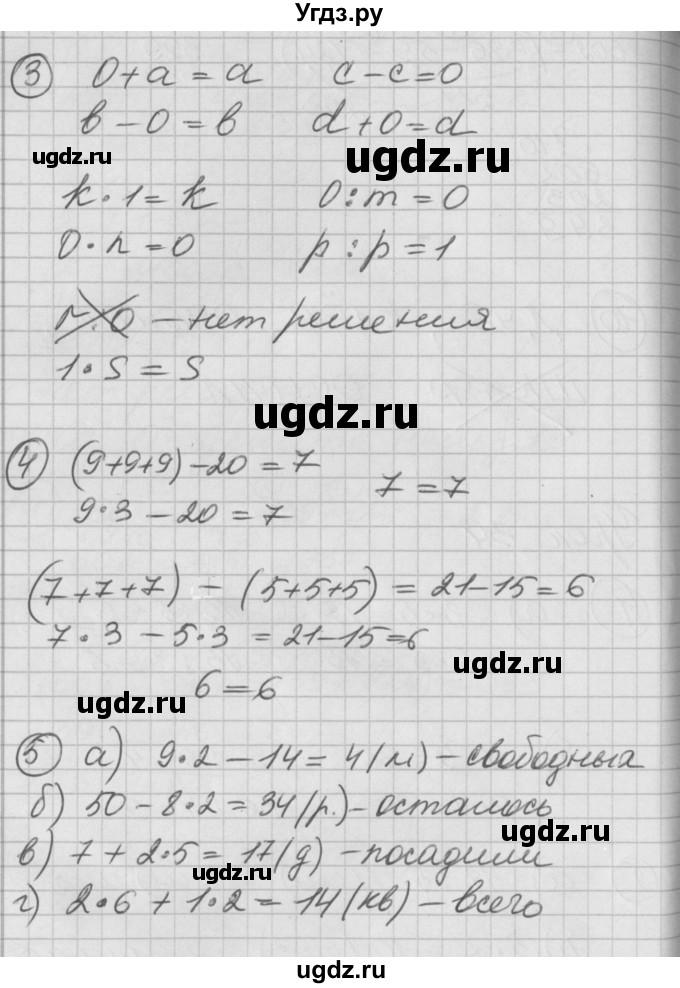 Угдз.ру
3 0+a=a c-c=0
в-0=в d+0=d
ugdz.ru ugdz.ru
k·1=k 0:m=0
0·n=0 p:p=1
r:0 - нет решения
1·S=S
ugdz.ru
4 (9+9+9)-20=7
7=7
9·3-20=7
(7+7+7)-(5+5+5)=21-15=6
7·3-5·3=21-15=6
ugdz.ru
6=6
ugdz.ru
5 а) 9·2-14=4(м)-свободных
б) 50-8·2=34(р.)-осталось
ugdz.ru
в) 7+2·5=17(д)-посадили
ugdz.ru
г) 2·6+1·2=14(кв)-всего
ugdz.ru